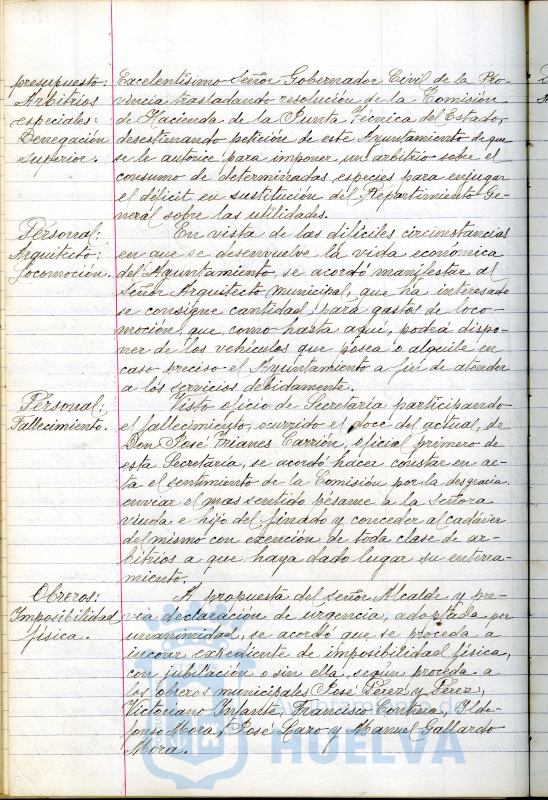 presupuesto: Excelentísimo Señor Gobernador Civil de la Pro-
Arbitrios vincia trasladando resolución de la Comisión
especiales: de Hacienda de la Junta Técnica del Estado,
Denegación desestimando petición de este Ayuntamiento de que
superior. se le autorice para imponer un arbitrio sobre el
consumo de determinadas especies para enjugar
el déficit en sustitución del Repartimiento Ge-
neral sobre las utilidades.
Personal: En vista de las difíciles circunstancias
Arquitecto: en que se desenvuelve la vida económica
Locomoción. del Ayuntamiento, se acordó manifestar al
Señor Arquitecto municipal, que ha interesado
se consigne cantidad para gastos de loco-
moción, que, como hasta aquí, podrá dispo-
ner de los vehículos que posea o alquile en
caso preciso el Ayuntamiento a fin de atender
a los servicios debidamente.
Personal: Visto oficio de Secretaría participando
Fallecimiento. el fallecimiento, ocurrido el doce del actual, de
Don José Trianes Carrión, oficial primero de
esta Secretaría, se acordó hacer constar en ac-
ta el sentimiento de la Comisión por la desgracia,
enviar el mas sentido pésame a la Señora
viuda e hijo del finado y conceder al cadáver
del mismo con exención de toda clase de ar-
bitrios a que haya dado lugar su enterra-
miento.
Obreros: A propuesta del señor Alcalde y pre-
Imposibilidad via declaración de urgencia, adoptada por
física. unanimidad, se acordó que se proceda a
incoar expediente de imposibilidad física,
con jubilación o sin ella, según proceda a
los obreros municipales José Pérez y Pérez,
Victoriano Infante, Francisco Contina, Ilde-
fonso Mora, José Lazo y Manuel Gallardo
Mora.
Ayuntamiento de
HUELVA